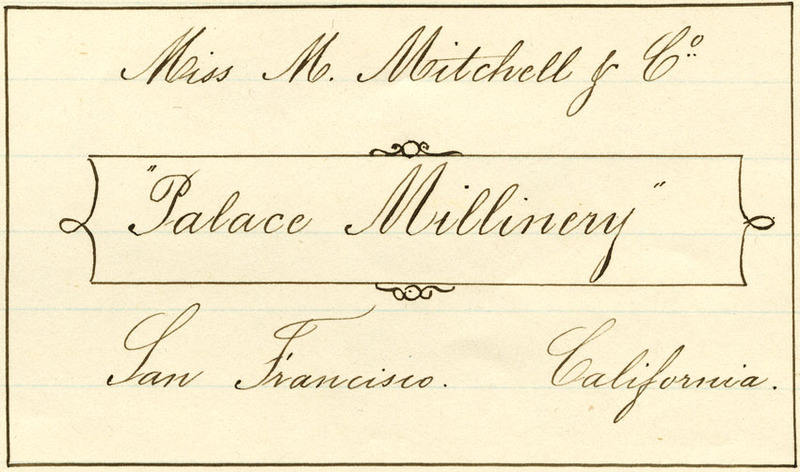 Miss M. Mitchell & Co.
"Palace Millinery"
San Francisco. California.